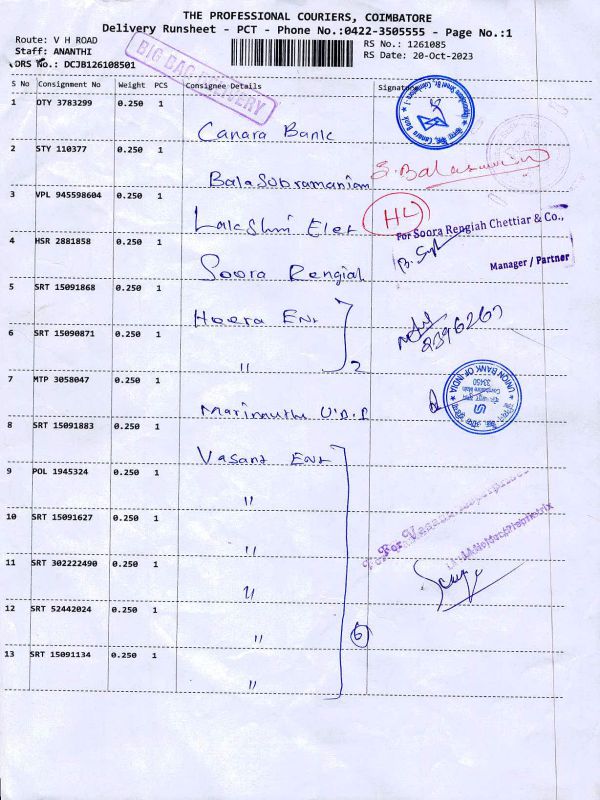 THE PROFESSIONAL COURIERS, COIMBATORE
Delivery Runsheet - PCT - Phone No.:0422-3505555 - Page No.:1
Route: V H ROAD
RS No.: 1261085
Staff: ANANTHI
RS Date: 20-Oct-2023
DRS No.: DCJB126108501
S No Consignment No Weight PCS Consignee Details Signature
1 DTY 3783299 0.250 1
Canara Bank
2 STY 110377 0.250 1
BalaSubramaniam
3 VPL 945598604 0.250 1
Lakshmi Elet HL
For Soora Rengiah Chettiar & Co.,
4 HSR 2881858 0.250 1
Soora Rengiah
Manager / Partner
5 SRT 15091868 0.250 1
Heera Ent
6 SRT 15090871 0.250 1
" 2
7 MTP 3058047 0.250 1
UNION BANK OF INDIA
8 SRT 15091883 0.250 1
Vasant Ent
9 POL 1945324 0.250 1
"
10 SRT 15091627 0.250 1
"
11 SRT 302222490 0.250 1
"
12 SRT 52442024 0.250 1
" 6
13 SRT 15091134 0.250 1
"